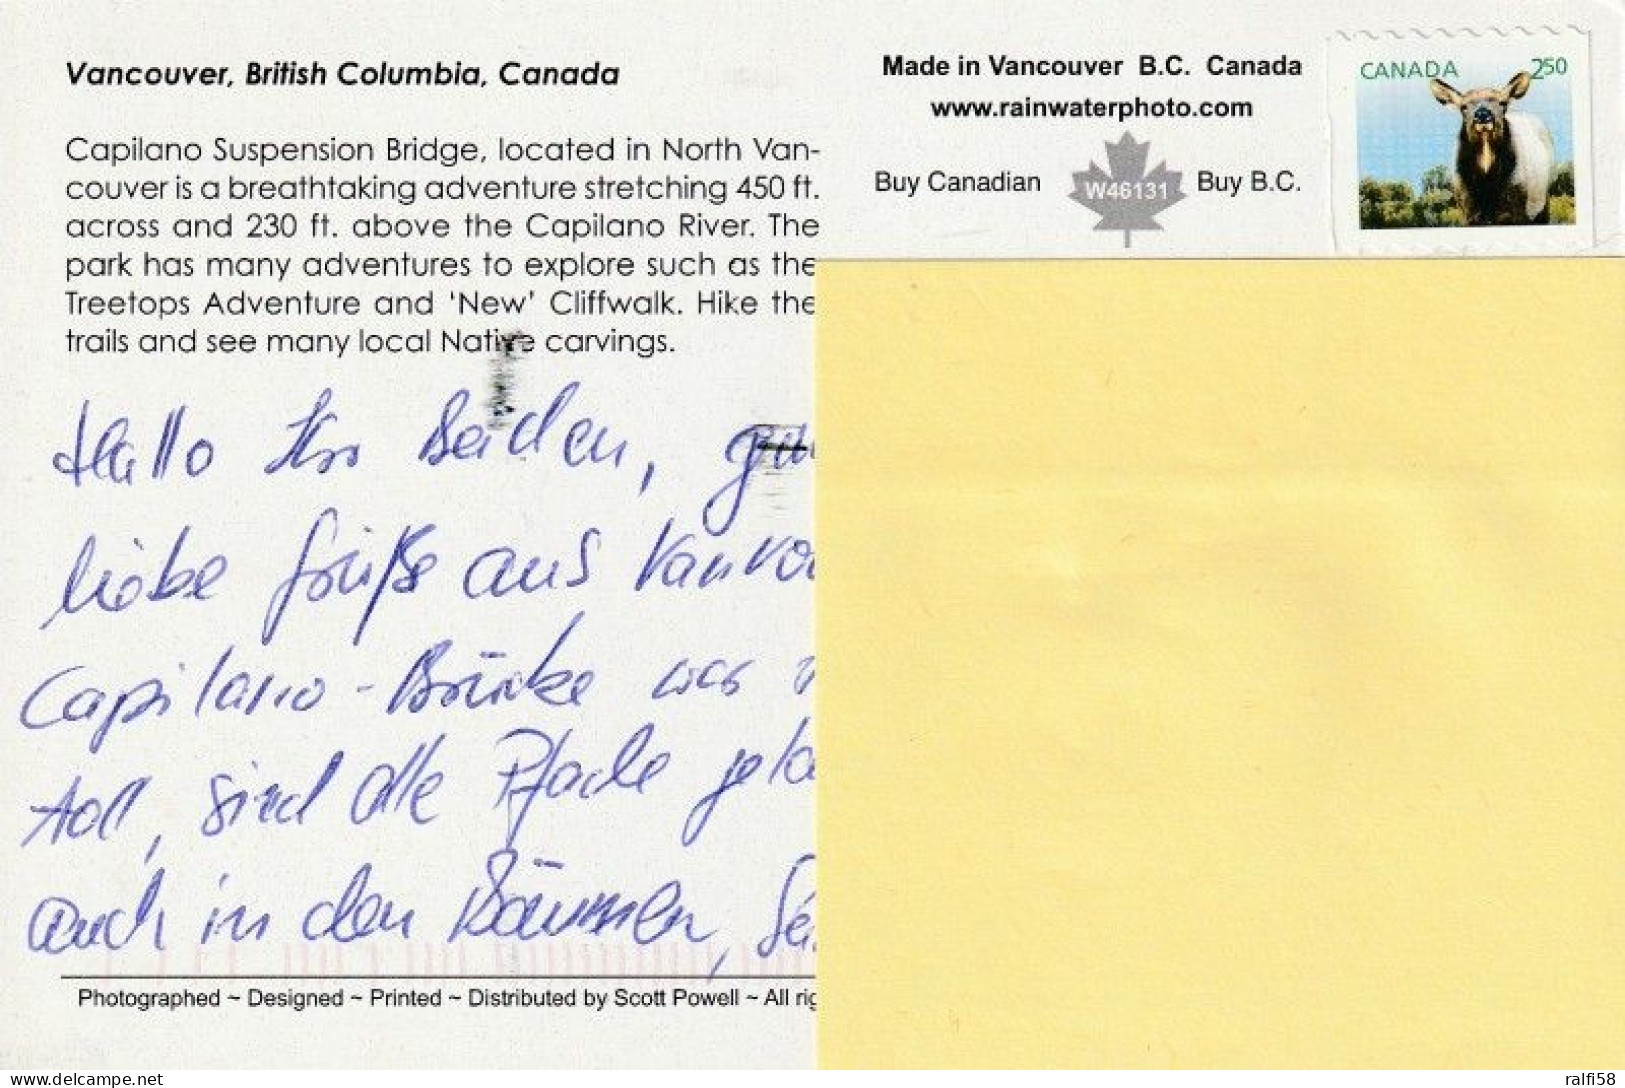 Vancouver, British Columbia, Canada
Capilano Suspension Bridge, located in North Van-
couver is a breathtaking adventure stretching 450 ft.
across and 230 ft. above the Capilano River. The
park has many adventures to explore such as the
Treetops Adventure and ‘New’ Cliffwalk. Hike the
trails and see many local Native carvings.
Made in Vancouver B.C. Canada
www.rainwaterphoto.com
Buy Canadian W46131 Buy B.C.
CANADA 250
Hallo Ihr Beiden,
liebe Grüße aus
Capilano-Brücke war
toll, sind alle Pfade
auch in den Bäumen,
Photographed ~ Designed ~ Printed ~ Distributed by Scott Powell ~ All
delcampe.net
ralfi58